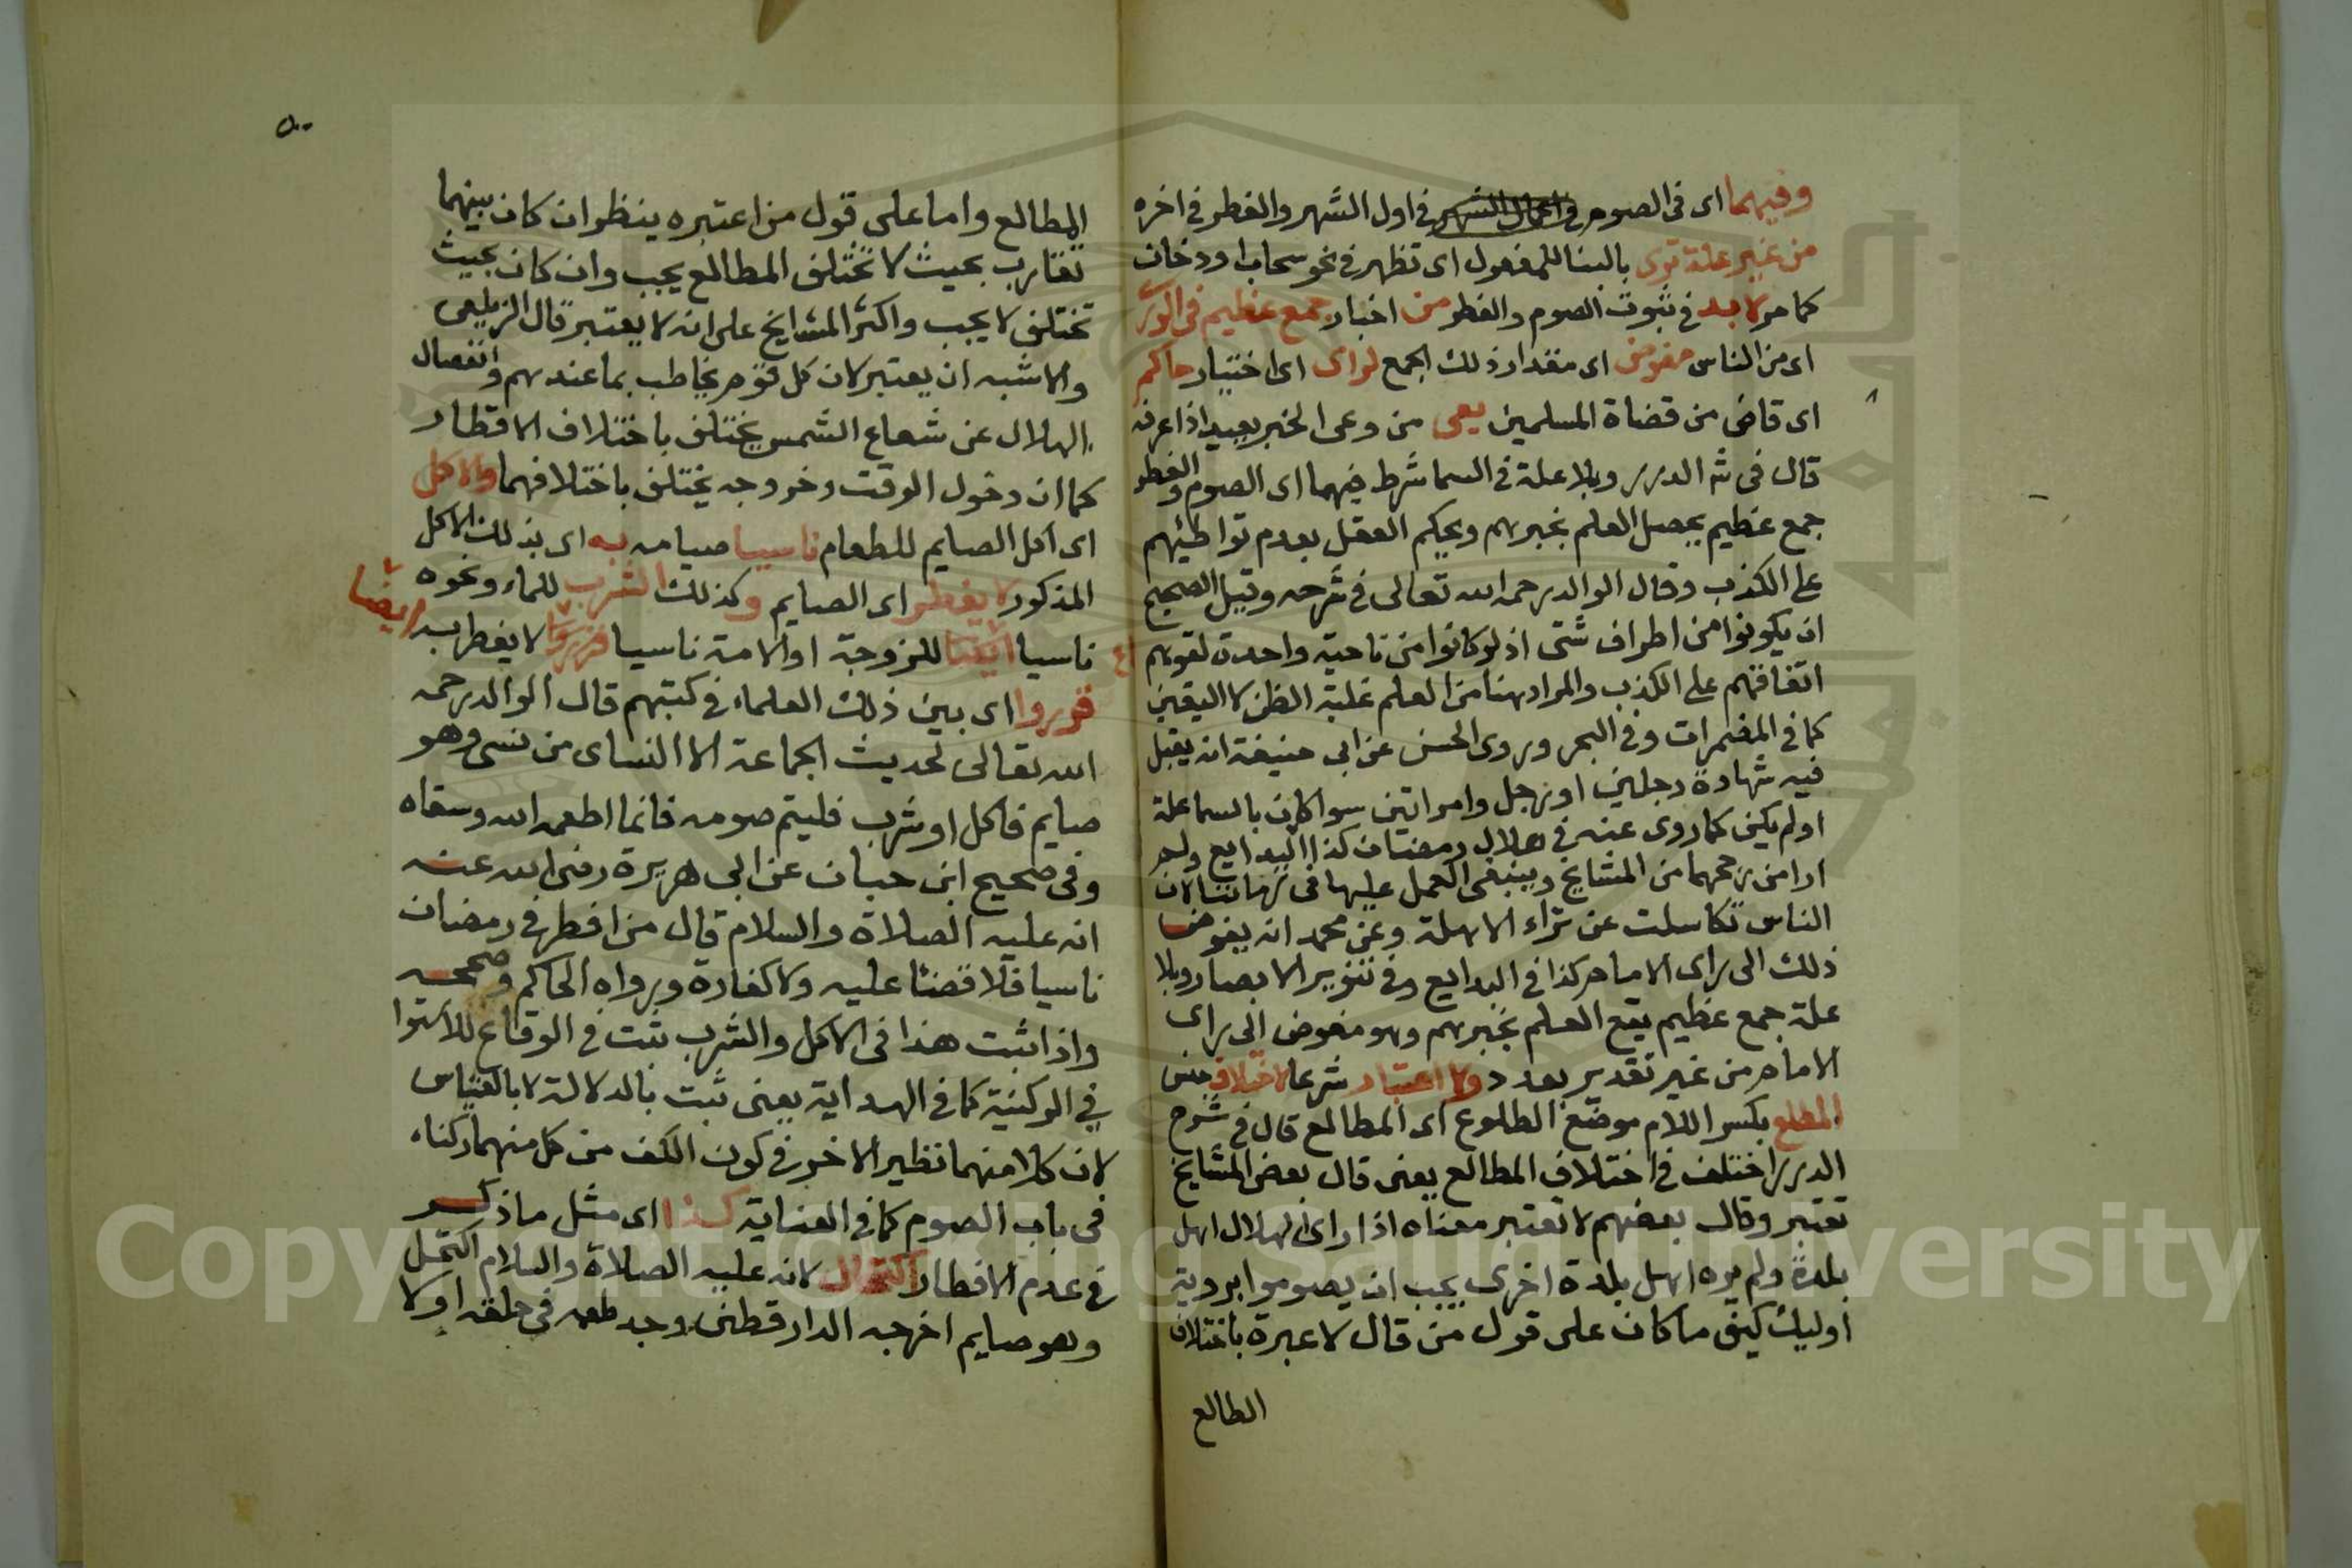 وفيهما اى فى الصوم فى اول الشهر والفطر فى اخره
من غير علة ترى بالبنا للمفعول اى تظهر فى نحو سحاب او دخان
كما مر لا بد فى ثبوت الصوم والفطر من اخبار جمع عظيم فى الورى
اى من الناس مفوض اى مقدار ذلك الجمع لراى اى اختيار حاكم
اى قاض من قضاة المسلمين يعى من وعى الخبر يعيه اذا عرفه
قال فى شرح الدرر وبلا علة فى السما شرط فيهما اى الصوم والفطر
جمع عظيم يحصل العلم بخبرهم ويحكم العقل بعدم تواطئهم
على الكذب وقال الوالد رحمه الله تعالى فى شرحه وقيل الصحيح
ان يكونوا من اطراف شتى اذ لو كانوا من ناحية واحدة لقوهم
اتفاقهم على الكذب والمراد هنا من العلم غلبة الظن لا اليقين
كما فى المضمرات وفى البحر وروى الحسن عن ابى حنيفة انه يقبل
فيه شهادة رجلين او رجل وامراتين سوا كان بالسما علة
او لم يكن كما روى عنه فى هلال رمضان كذا البدايع ولم
ارا من رجحها من المشايخ وينبغى العمل عليها فى زماننا لان
الناس تكاسلت عن تراء الاهلة وعن محمد انه يفوض
ذلك الى راى الامام كذا فى البدايع وفى تنوير الابصار وبلا
علة جمع عظيم يقع العلم بخبرهم وهو مفوض الى راى
الامام من غير تقدير بعدد ولا اعتبار شرعا لاختلاف جنس
المطلع بكسر اللام موضع الطلوع اى المطالع قال فى شرح
الدرر اختلف فى اختلاف المطالع يعنى قال بعض المشايخ
تعتبر وقال بعضهم لا تعتبر معناه اذا راى الهلال اهل
بلدة ولم يره اهل بلدة اخرى يجب ان يصوموا برويه
اوليك كيف ما كان على قول من قال لا عبرة باختلاف
الطالع
٥٠
المطالع واما على قول من اعتبره ينظر ان كان بينهما
تقارب بحيث لا تختلف المطالع يجب وان كان بحيث
تختلف لا يجب واكثر المشايخ على انه لا يعتبر قال الزيلعى
والاشبه ان يعتبر لان كل قوم يخاطب بما عندهم وانفصال
الهلال عن شعاع الشمس يختلف باختلاف الاقطار
كما ان دخول الوقت وخروجه يختلف باختلافهما والاكل
اى اكل الصايم للطعام ناسيا صيامه به اى بذلك الاكل
المذكور لا يفطر اى الصايم وكذلك الشرب للماء ونحوه
ناسيا ايضا للزوجة او الامة ناسيا لا يفطر به ايضا
قرروا اى بين ذلك العلماء فى كتبهم قال الوالد رحمه
الله تعالى لحديث الجماعة الا النساى من نسى وهو
صايم فاكل او شرب فليتم صومه فانما اطعمه الله وسقاه
وفى صحيح ابن حبان عن ابى هريرة رضى الله عنه
انه عليه الصلاة والسلام قال من افطر فى رمضان
ناسيا فلا قضئا عليه ولا كفارة ورواه الحاكم وصححه
واذا ثبت هذا فى الاكل والشرب ثبت فى الوقاع للاستوا
فى الركنية كما فى الهداية يعنى ثبت بالدلالة لا بالقياس
لان كلا منهما نظير الاخر فى كون الكف من كل منهما ركنا
فى باب الصوم كما فى العناية كذا اى مثل ما ذكر
فى عدم الافطار اكتحال لانه عليه الصلاة والسلام اكتحل
وهو صايم اخرجه الدارقطنى وجد طعمه فى حلقه او لا
Copyright © King Saud University